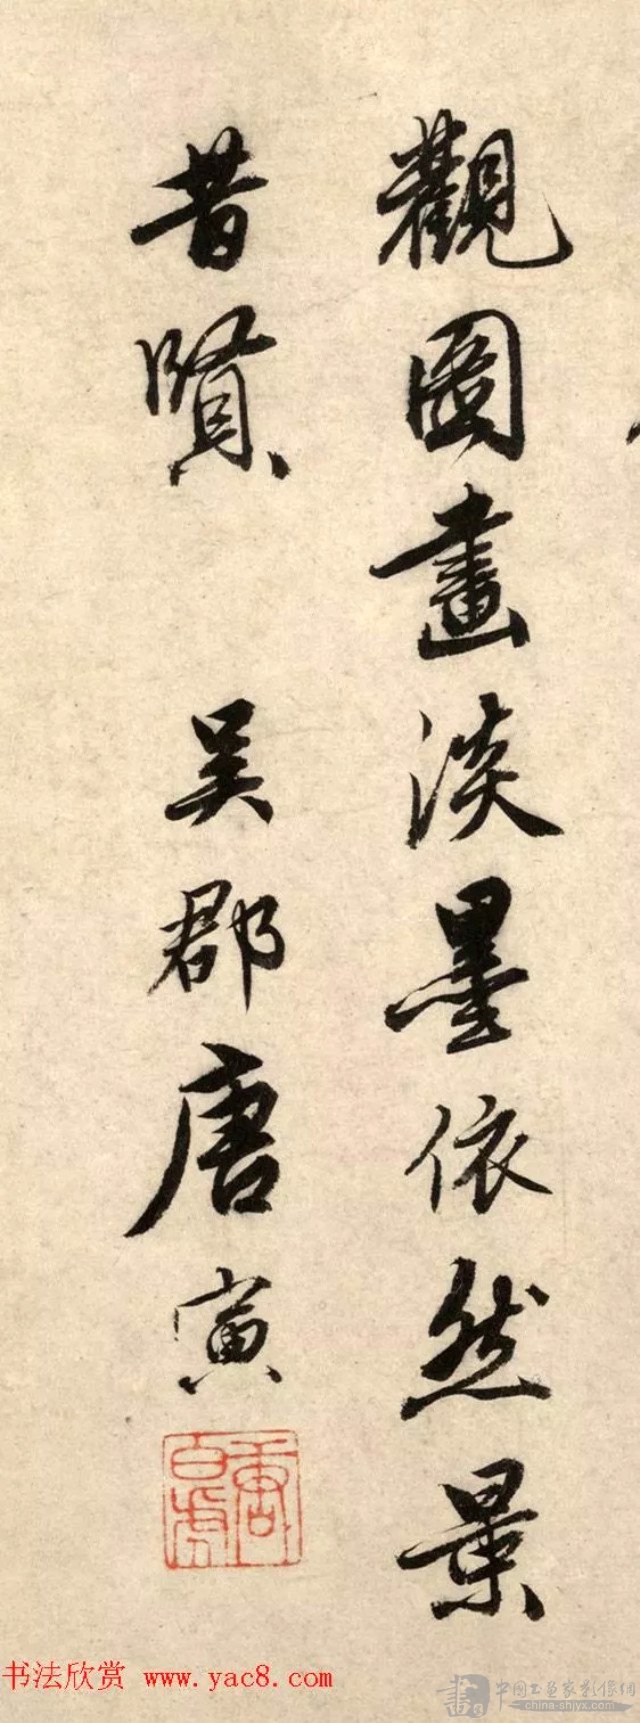 觀圖畫淡墨依然景
昔賢 吳郡唐寅
唐白虎
书法欣赏 www.yac8.com
畫 中国书画家影像網
china-shjyx.com